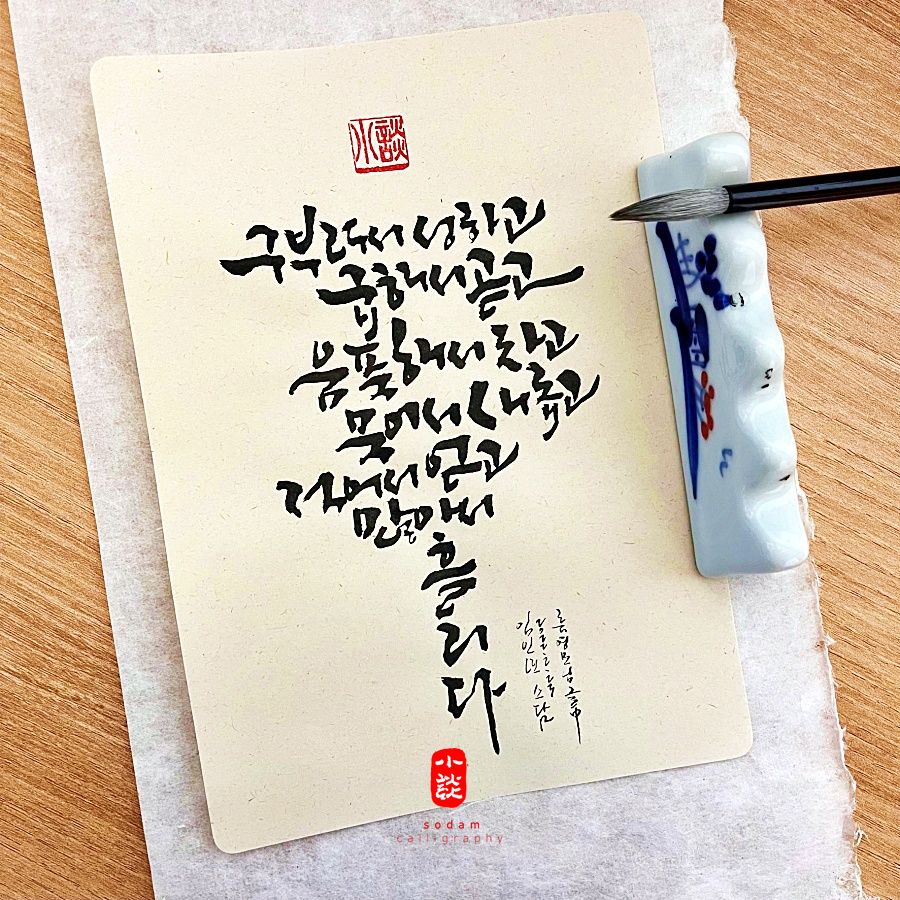 小談
구부려서 성하고
굽혀서 곧고
움푹해서 차고
묵어서 새롭고
적어서 얻고
많아서
흘
리
다
류영모
임인년 소담
小談
sodam
calligraphy